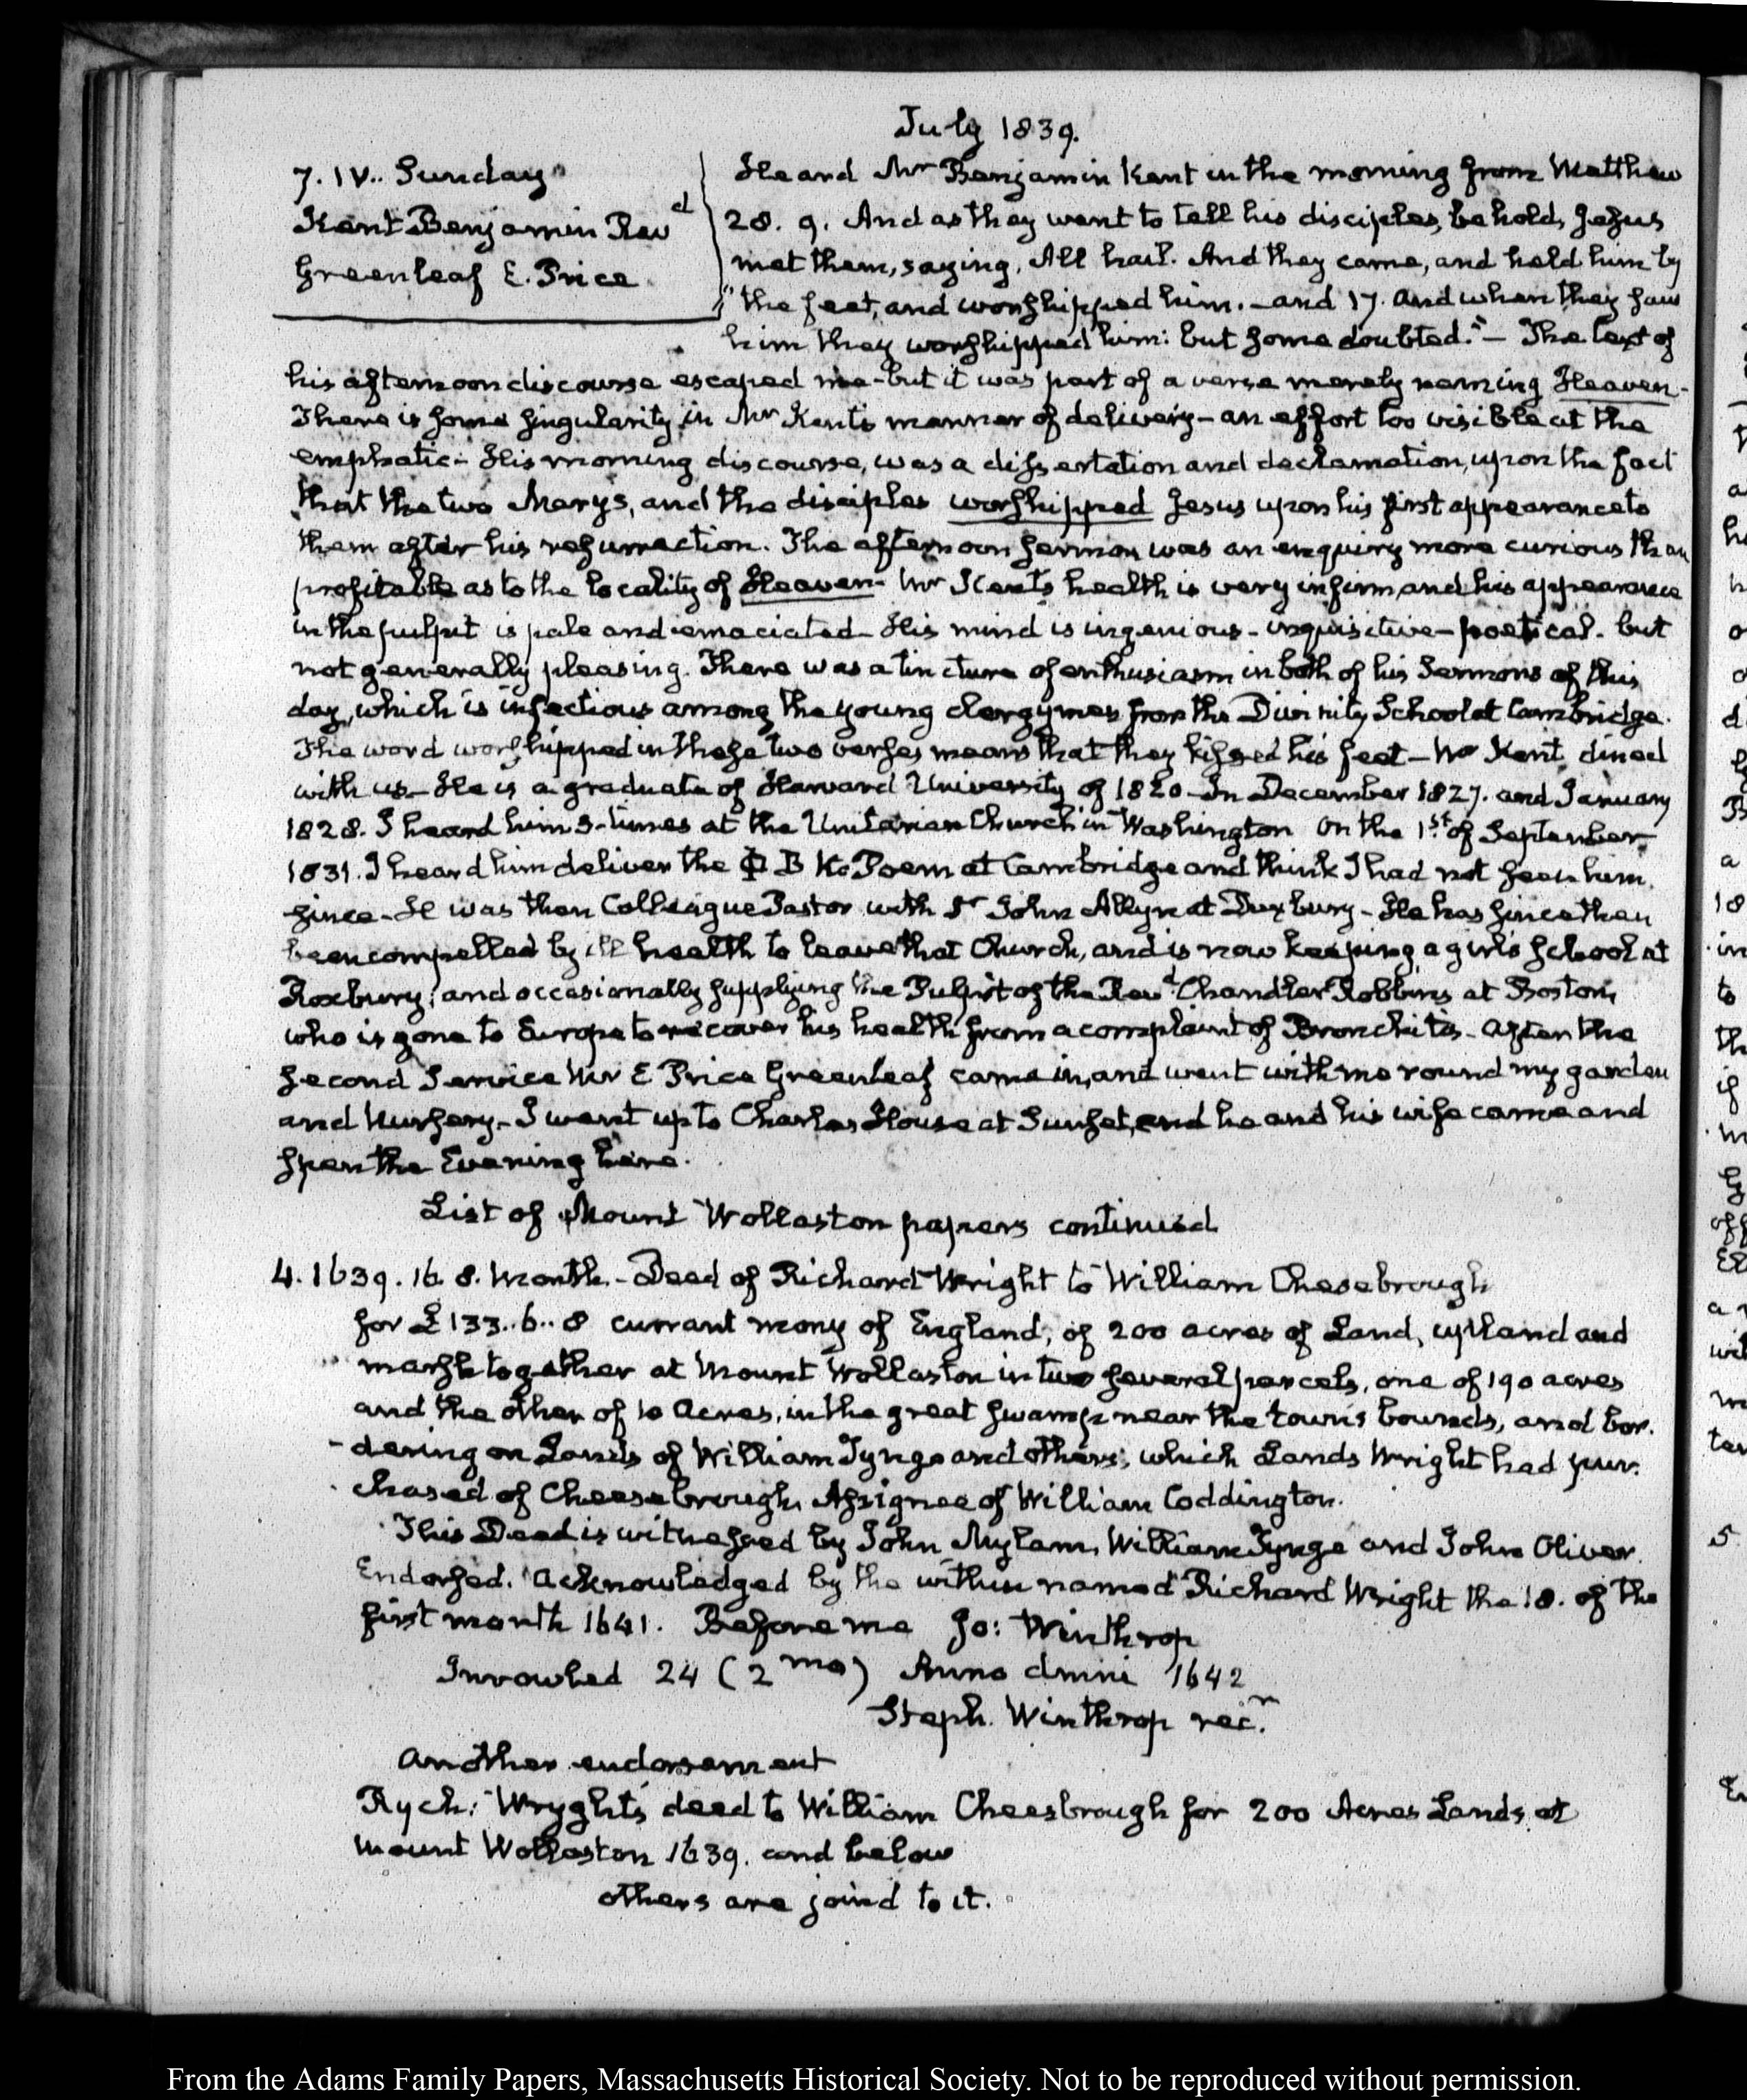 July 1839.
7. IV.. Sunday
Kent Benjamin Revd
Greenleaf E. Price
Heard Mr Benjamin Kent in the morning from Matthew
28. 9. And as they went to tell his disciples, behold, Jesus
met them, saying, All hail. And they came, and held him by
"the feet, and worshipped him. – and 17. And when they saw
him they worshipped him: but some doubted." – The text of
his afternoon discourse escaped me – but it was part of a verse merely naming Heaven –
There is some singularity in Mr Kent's manner of delivery – an effort too visible at the
emphatic – His morning discourse, was a dissertation and declamation, upon the fact
that the two Marys, and the disciples worshipped Jesus upon his first appearance to
them after his resurrection. The afternoon sermon was an enquiry more curious than
profitable as to the locality of Heaven – Mr Kent's health is very infirm and his appearance
in the pulpit is pale and emaciated – His mind is ingenious – inquisitive – poetical – but
not generally pleasing. There was a tincture of enthusiasm in both of his Sermons of this
day, which is infectious among the young clergymen from the Divinity School at Cambridge.
The word worshipped in these two verses means that they kissed his feet – Mr Kent dined
with us – He is a graduate of Harvard University of 1820 – In December 1827. and January
1828. I heard him 3 times at the Unitarian Church in Washington On the 1st of September
1831. I heard him deliver the Φ B K Poem at Cambridge and think I had not seen him
since – He was then Colleague Pastor with Dr John Allyn at Duxbury – He has since then
been compelled by ill health to leave that Church, and is now keeping a girls school at
Roxbury; and occasionally supplying the Pulpit of the Revd Chandler Robbins at Boston,
who is gone to Europe to recover his health from a complaint of Bronchitis – After the
second Service Mr E Price Greenleaf came in, and went with me round my garden
and Nursery – I went up to Charles House at Sunset, and he and his wife came and
spen the Evening here.
List of Mount Wollaston papers continued
4. 1639. 16. 8. Month. – Deed of Richard Wright to William Chesebrough
for £133..6..8 currant mony of England, of 200 acres of Land, upland and
marsh together at Mount Wollaston in two several parcels, one of 190 acres
and the other of 10 Acres, in the great swamp near the town's bounds, and bor-
-dering on Lands of William Tynge and others; which Lands Wright had pur-
chased of Cheesebrough Assignee of William Coddington.
This Deed is witnessed by John Mylam, William Tynge and John Oliver.
Endorsed. Acknowledged by the within named Richard Wright the 18. of the
first month 1641. Before me Jo: Winthrop
Inrowled 24 (2 mo) Anno dmni 1642
Steph. Winthrop recr.
Another endorsement
Rych: Wryghts deed to William Cheesbrough for 200 Acres Lands at
Mount Wollaston 1639. and below
others are joind to it.
From the Adams Family Papers, Massachusetts Historical Society. Not to be reproduced without permission.